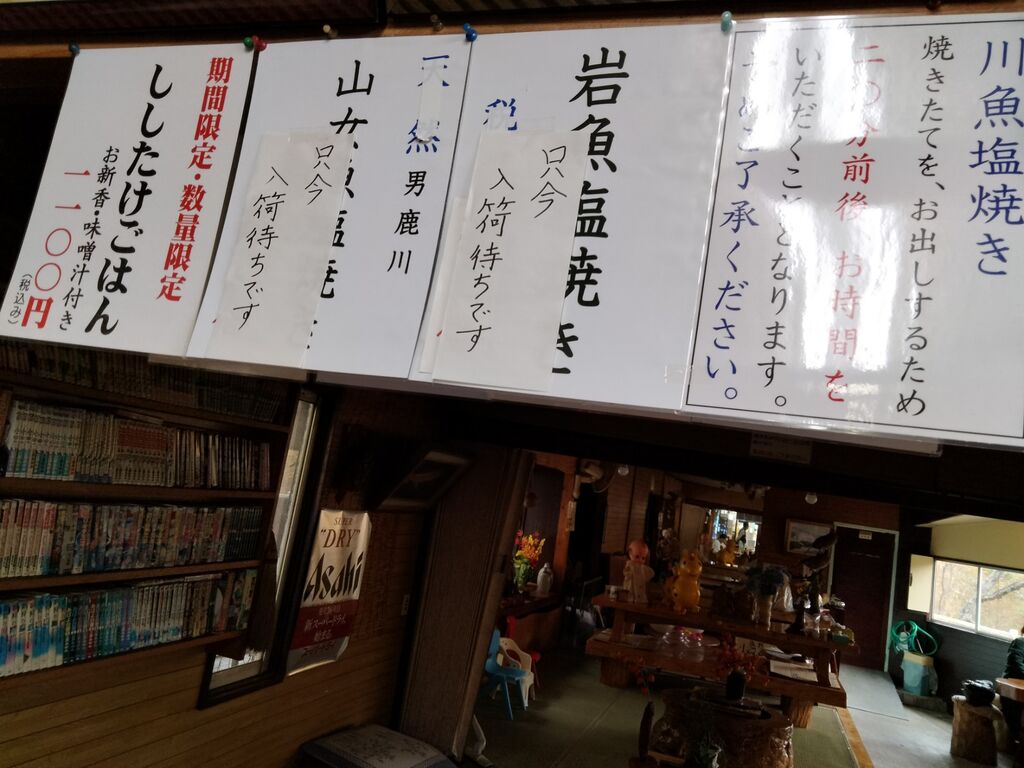 川魚塩焼き
焼きたてを、お出しするため
二〇分前後 お時間を
いただくこととなります。
ご了承ください。
岩魚塩焼き
税
只今
入荷待ちです
天然
男鹿川
山女魚塩焼き
只今
入荷待ちです
期間限定・数量限定
ししたけごはん
お新香・味噌汁付き
一一〇〇円
(税込み)
"DRY"
Asahi